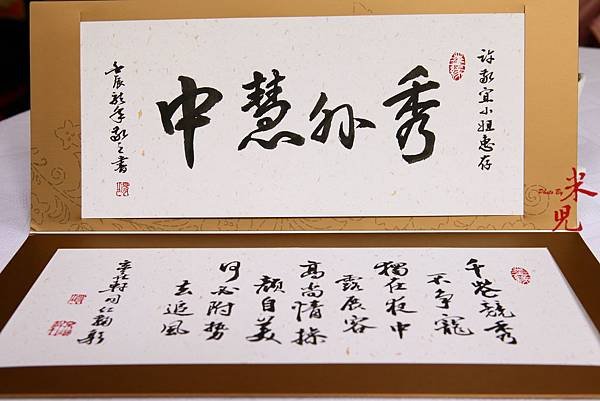 許敬宜小姐惠存
秀外慧中
壬辰龍年敬之書
Photo By 米兒
千競秀
不爭寵
獨在夜中
露展容
高尚情操
顏自美
何必附勢
去追風
軒同仁